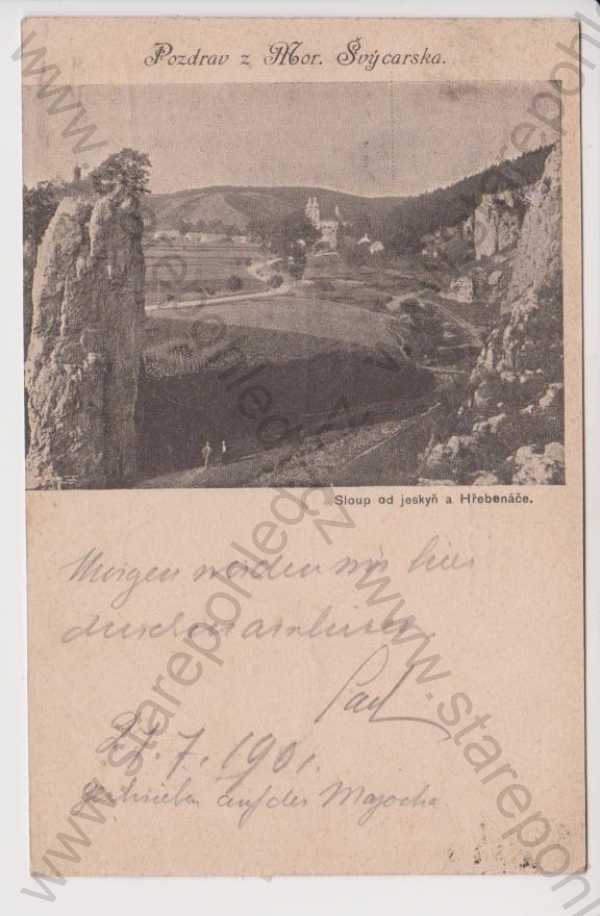 Pozdrav z Mor. Švýcarska.
Sloup od jeskyň a Hřebenáče.
Morgen werden wir hier
Paul
27. 7. 1901.
geschrieben auf der Mazocha
www.starepohledy.cz